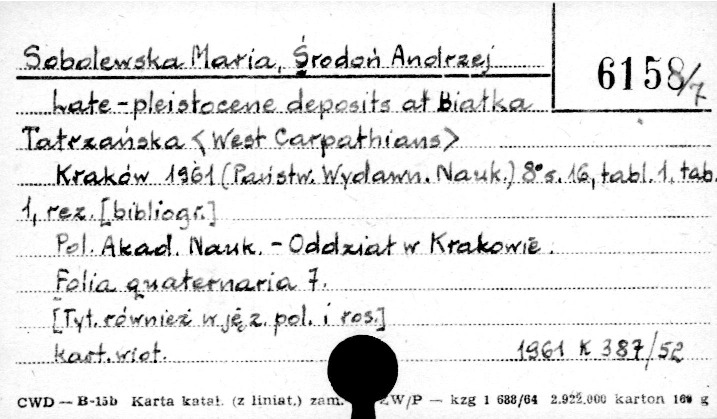 Sobolewska Maria, Środoń Andrzej
6158/7
Late-pleistocene deposits at Białka
Tatrzańska <West Carpathians>
Kraków 1961 (Państw. Wydawn. Nauk.) 8° s. 16, tabl. 1, tab.
1, rez. [bibliogr.]
Pol. Akad. Nauk. - Oddział w Krakowie.
Folia quaternaria 7.
[Tyt. również w jęz. pol. i ros.]
kart. wiot. 1961 K 387/52
CWD — B-15b Karta katal. (z liniat.) zam. ZW/P — kzg 1 688/64 2.922.000 karton 160 g